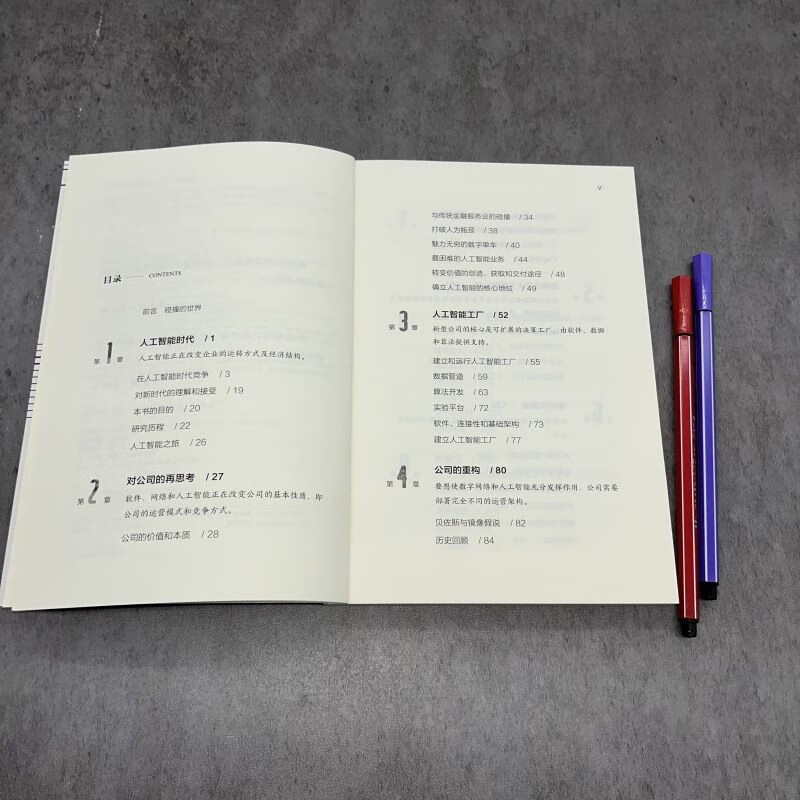 目录 —— CONTENTS
前言 碰撞的世界
第1章 人工智能时代 / 1
人工智能正在改变企业的运转方式及经济结构。
在人工智能时代竞争 / 3
对新时代的理解和接受 / 19
本书的目的 / 20
研究历程 / 22
人工智能之旅 / 26
第2章 对公司的再思考 / 27
软件、网络和人工智能正在改变公司的基本性质，即
公司的运营模式和竞争方式。
公司的价值和本质 / 28
V
与传统金融服务业的碰撞 / 34
打破人为瓶颈 / 38
魅力无穷的数字单车 / 40
最困难的人工智能业务 / 44
转变价值的创造、获取和交付途径 / 48
确立人工智能的核心地位 / 49
第3章 人工智能工厂 / 52
新型公司的核心是可扩展的决策工厂，由软件、数据
和算法提供支持。
建立和运行人工智能工厂 / 55
数据管道 / 59
算法开发 / 63
实验平台 / 72
软件、连接性和基础架构 / 73
建立人工智能工厂 / 77
第4章 公司的重构 / 80
要想使数字网络和人工智能充分发挥作用，公司需要
部署完全不同的运营架构。
贝佐斯与镜像假说 / 82
历史回顾 / 84